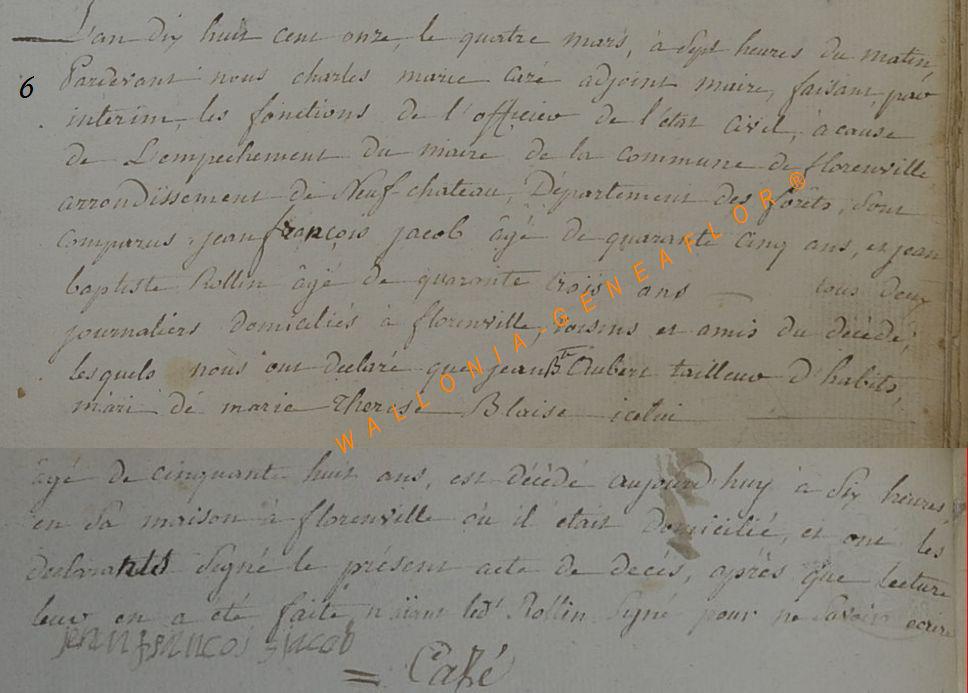 L'an dix huit cent onze, le quatre mars, à Sept heures du matin,
6
Pardevant nous charles marie Caré adjoint maire, faisant, par
interim, les fonctions de l'officier de l'état Civil, à cause
de L'empechement du maire de la commune de florenville
arrondissement de Neufchateau, Département des forêts, sont
comparus jean françois jacob âgé de quarante cinq ans, et jean
baptiste Rollin âgé de quaronte trois ans — tous deux
journaliers domiciliés à florenville, voisins et amis du décédé,
lesquels nous ont declaré que jean Bte Aubert tailleur d'habits,
mari de marie Therese Blaise icelui
âgé de cinquante huit ans, est décédé aujourd'huy à Six heures,
en Sa maison à florenville où il était domicilié, et ont les
declarants Signé le présent acte de decès, après que lecture
leur en a été faite, n'aïant led' Rollin Signé pour ne Savoir ecrire
jean francois jacob
= Caré
WALLONIA-GENEAFLOR®